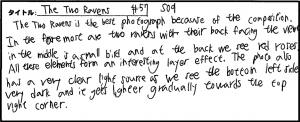 タイトル: The Two Ravens #57 S09
The Two Ravens is the best photograph because of the composition.
In the foremore are two ravens with their back facing the view
in the middle is a small bird and at the back we see red roses.
All these elements form an interesting layer effect. The photo also
has a very clear light source as we see the bottom left side
very dark and it gets lighter gradually towards the top
right corner.